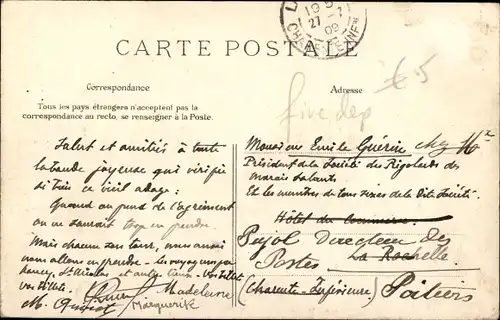 L
19
27 - 7
09
CARTE POSTALE
Correspondance
Adresse
£5
five dep
Tous les pays étrangers n'acceptent pas la
correspondance au recto, se renseigner à la Poste.
Salut et amitiés à toute
la bande joyeuse qui vérifie
si bien ce vieil adage:
Quand on prend de l'agrément
on ne saurait trop en prendre.
Mais chacun son tour, nous aussi
nous allons en prendre. Le voyage
St Nicolas et autres lieux.
Madeleine
M. Marguerite
Monsieur Emile Guérin chez Mr
Président de la Société des Rigolards des
marais salants
Et les membres de tous sexes de la dite Société.
Hôtel du Commerce.
Pujol Directeur des
Postes La Rochelle.
(Charente-Inférieure) Poitiers